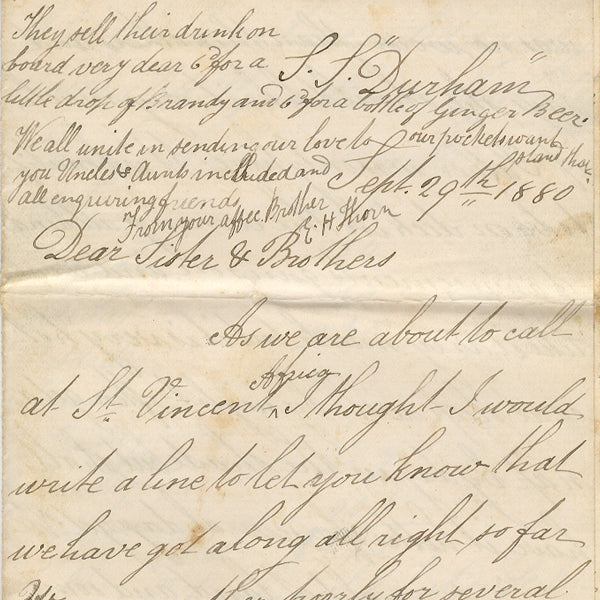 They sell their drink on
board very dear 6d for a
little drop of Brandy and 6d for a bottle of Ginger Beer.
our pockets wont
stand that.
We all unite in sending our love to
you Uncles & Aunts included and
all enquiring friends
From your affec. Brother
E. H Thorn
S. S. "Durham"
Sept. 29th 1880
Dear Sister & Brothers
As we are about to call
at St. Vincent Africa I thought I would
write a line to let you know that
we have got along all right so far
poorly for several